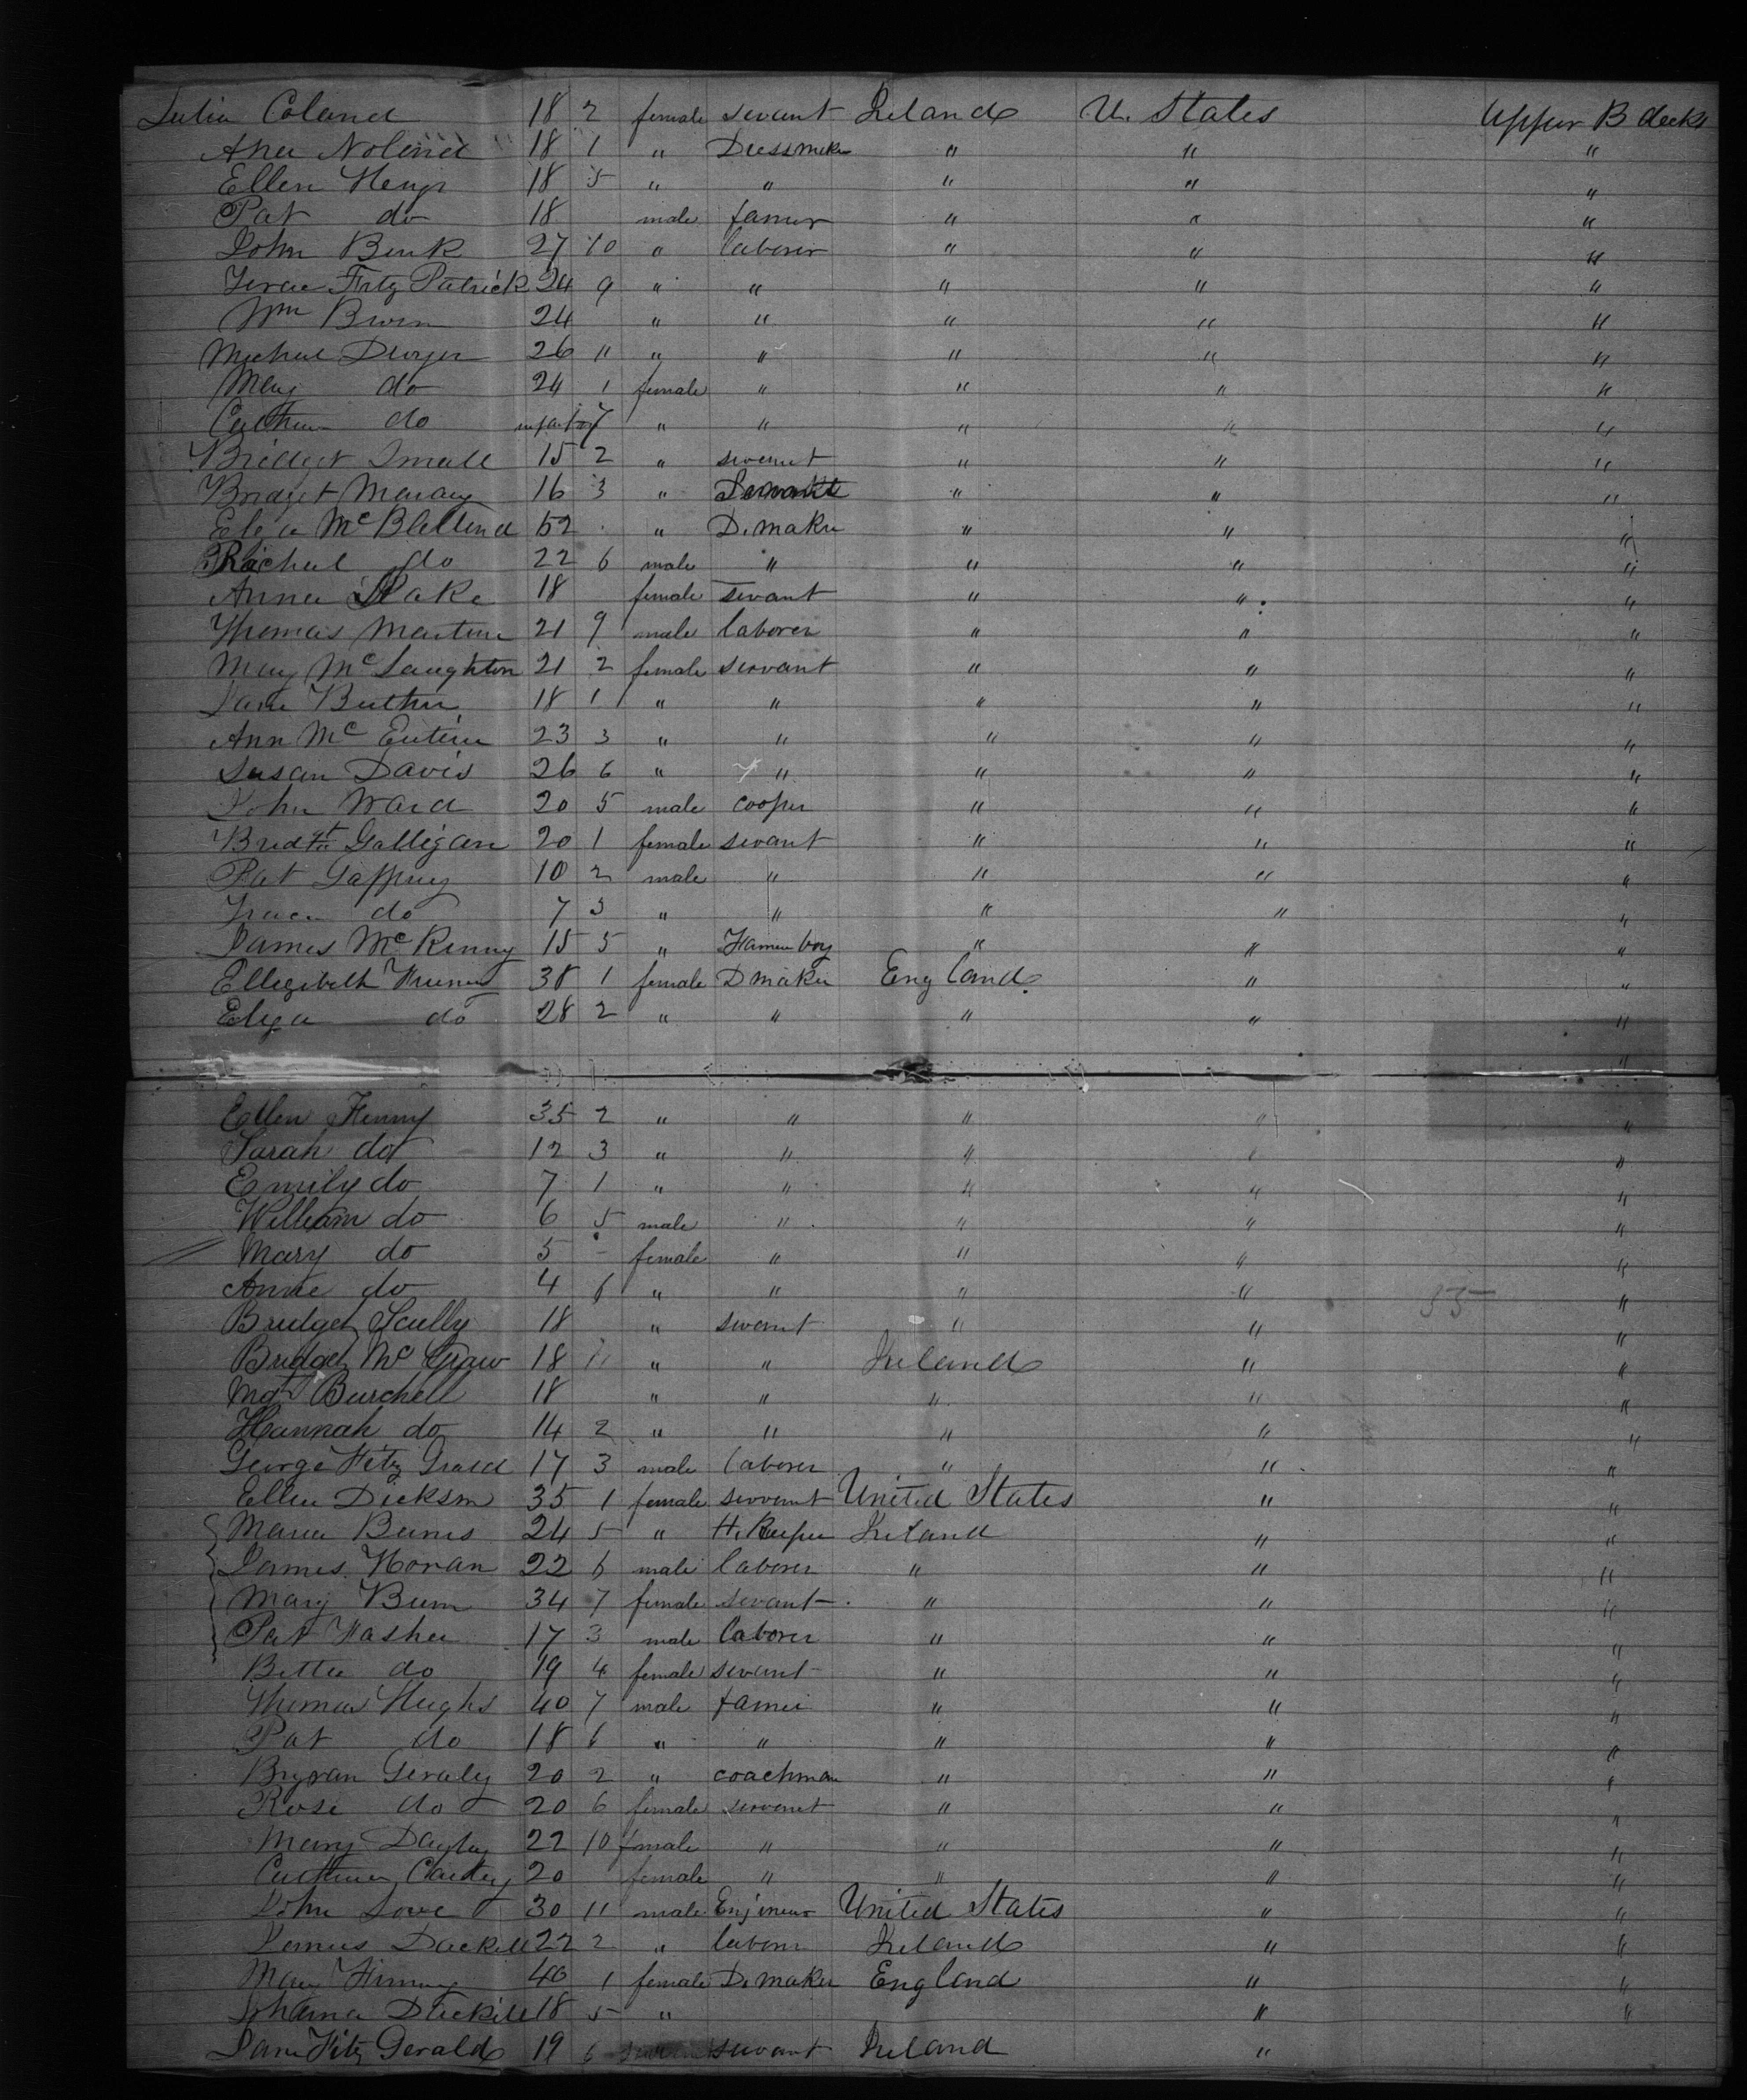 Julia Coland 18 2 female servant Ireland U. States Upper B decks
Ann 18 1 " Dressmaker " " "
Ellen 18 5 " " " " "
Pat do 18 male farmer " " "
John 27 10 " laborer " " "
Fitz Patrick 24 9 " " " " "
Wm 24 " " " " "
Michael Dwyer 26 11 " " " " "
Mary do 24 1 female " " " "
do infant " " " " "
Bridget Small 15 2 " servant " " "
Bridget 16 3 " " " "
Mc 52 " D. maker " " "
do 22 6 male " " " "
Anna 18 female servant " " "
Thomas Martin 21 9 male laborer " " "
Mary McLaughton 21 2 female servant " " "
Jane 18 1 " " " " "
Ann Mc 23 3 " " " " "
Susan Davis 26 6 " " " " "
John Ward 20 5 male cooper " " "
Galligan 20 1 female servant " " "
Pat Gaffney 10 2 male " " " "
do 7 3 " " " " "
James McKinny 15 5 " boy " " "
38 1 female D maker England " "
Eliza do 28 2 " " " " "
"
Ellen Finny 35 2 " " " " "
Sarah do 12 3 " " " " "
Emily do 7 1 " " " " "
William do 6 5 male " " " "
Mary do 5 - female " " " "
Annie do 4 6 " " " " 35 "
Bridget Scully 18 " servant " " "
Bridget McGraw 18 11 " " Ireland " "
Mgt Burchell 18 " " " " "
Hannah do 14 2 " " " " "
George Fitz Grald 17 3 male laborer " " "
Ellen Dickson 35 1 female servant United States " "
Maria Burns 24 5 " H. Keeper Ireland " "
James Horan 22 6 male laborer " " "
Mary 34 7 female servant " " "
Pat 17 3 male laborer " " "
do 19 4 female servant " " "
Thomas Hughs 40 7 male farmer " " "
Pat do 18 6 " " " " "
Bryan 20 2 " coachman " " "
Rose do 20 6 female servant " " "
Mary 22 10 female " " " "
20 female " " " "
John Love 30 11 male Enjineur United States " "
James 22 2 " laborer Ireland " "
40 1 female D. maker England " "
Johanna 18 5 " " "
Jane Fitz Gerald 19 6 servant Ireland "